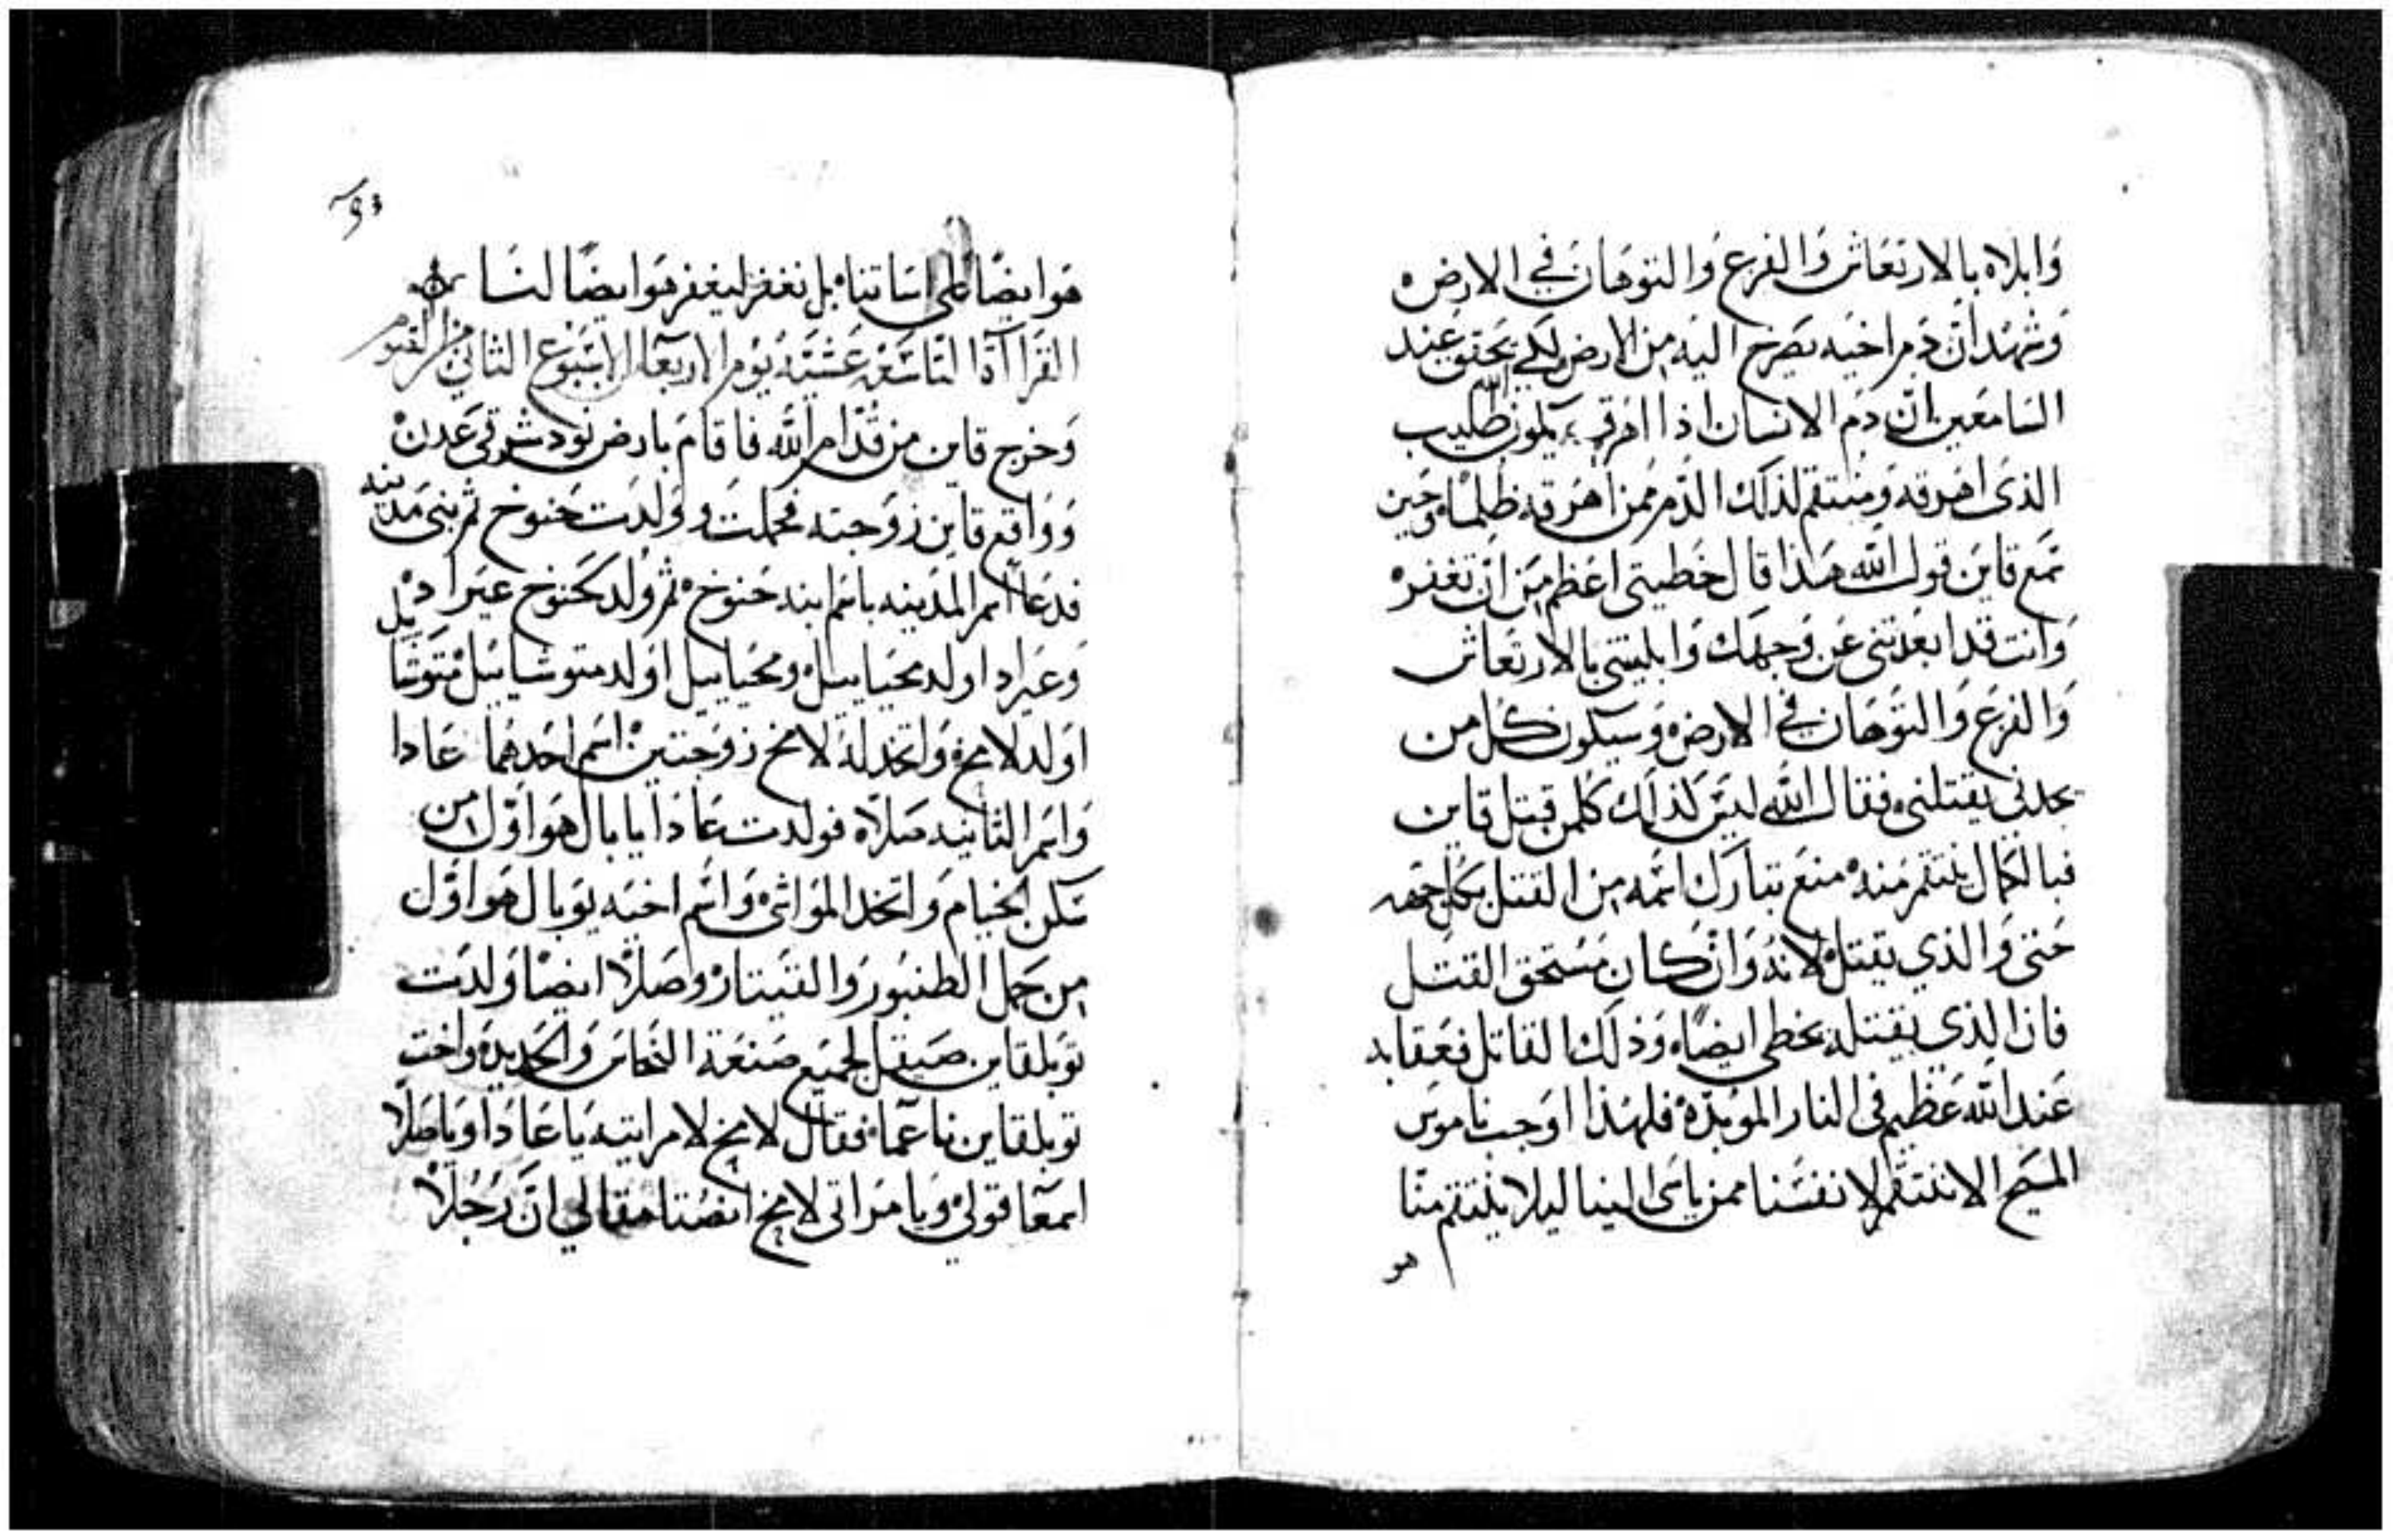 وابلاه بالارتعاش والفزع والتوهان في الارض
وشهد ان دم اخيه يصرخ اليه من الارض لكي تحقق عند
السامعين ان دم الانسان اذا اهرق يكون الله طليب
الذى اهرقه ومنتقم لذلك الدم ممن اهرقه ظلما وحين
سمع قاين قول الله هذا قال خطيتي اعظم من ان تغفر
وانت قد ابعدتني عن وجهك وابليتني بالارتعاش
والفزع والتوهان في الارض وسيكون كل من
يجدني يقتلني فقال الله ليس كذلك كلمن قتل قاين
فبالكمال ينتقم منه منع تبارك اسمه من القتل بكل جهه
حتى والذي يقتل لانه وان كان مستحق القتل
فان الذي يقتله يخطي ايضا وذلك القاتل فعقابه
عند الله عظيم في النار الموبده فلهذا اوجب ناموس
المسيح الا ننتقم لانفسنا ممن ياسى الينا ليلا ينتقم منا
هو
هو ايضا على اساتنا بل نغفر ليغفر هو ايضا لنا
القراآة التاسعة عشية يوم الاربعا الاسبوع الثاني من الصوم
وخرج قاين من قدام الله فاقام بارض نود شرقي عدن
وواقع قاين زوجته فحملت وولدت حنوخ ثم بنى مدينه
فدعا اسم المدينه باسم ابنه حنوخ ثم ولد لحنوخ عيراد
وعيراد اولد محياييل ومحياييل اولد متوشاييل متوشاييل
اولد لامخ واتخذ له لامخ زوجتين اسم احدهما عادا
واسم الثانيه صلاه فولدت عادا يابال هو اول من
سكن الخيام واتخذ المواشي واسم اخيه يوبال هو اول
من حمل الطنبور والقيتار وصلا ايضا ولدت
توبلقاين صيقل لجميع صنعة النحاس والحديد واخت
توبلقاين ناعما فقال لامخ لامراتيه يا عادا ويا صلا
اسمعا قولي ويا مراتى لامخ انصتا مقالي ان رجلا